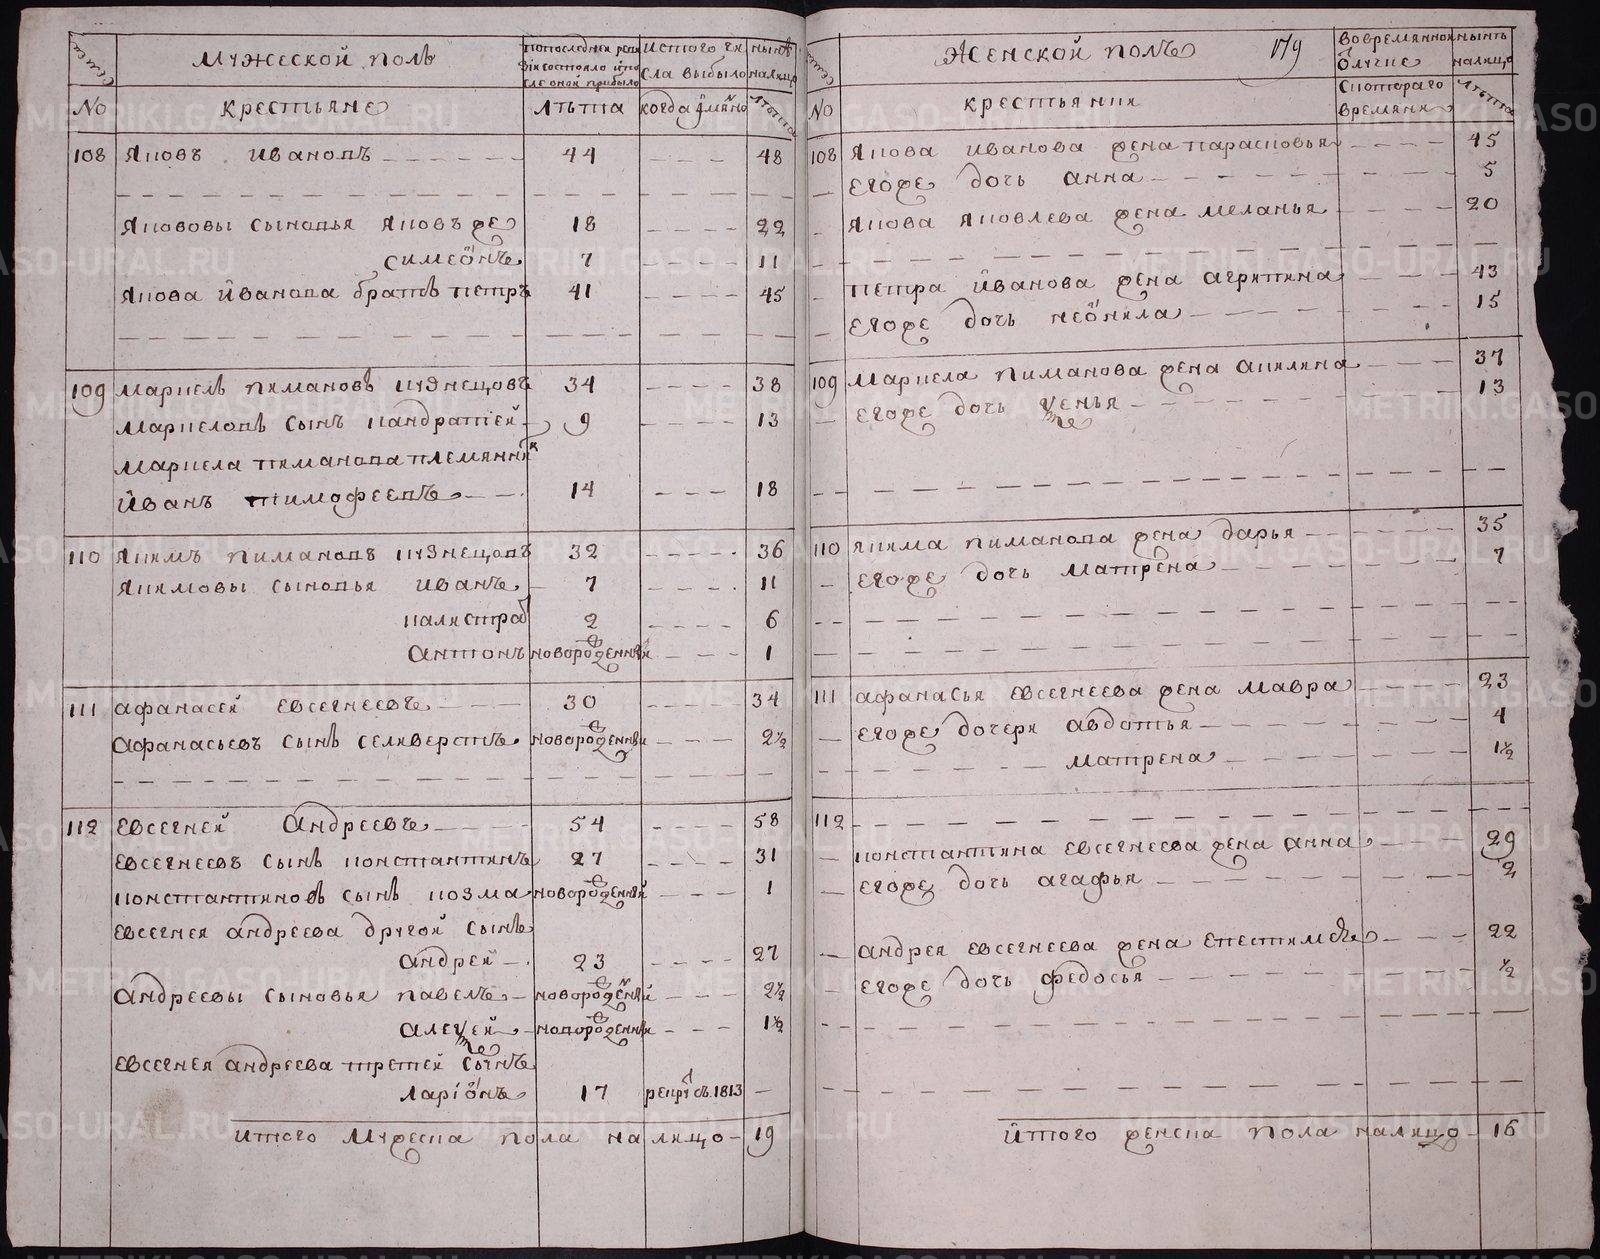 семей
Мужеской полъ
попоследней реви
зiи состояло и по
сле оной прибыло
Истого чи
сла выбыло
нынѣ
налицо
No
крестьяне
лѣтта
когда имянно
лѣтта
108 Яковъ Ивановъ 44 48
Якововы сыновья Яковъ же 18 22
Симеонъ 7 11
Якова Иванова братъ петръ 41 45
109 Маркелъ Кимановъ Кузнецовъ 34 38
Маркеловъ сынъ Кандратiей 9 13
Маркела Киманова племянник
Иванъ Тимофеевъ 14 18
110 Якимъ Кимановъ Кузнецовъ 32 36
Якимовы сыновья Иванъ 7 11
Калистратъ 2 6
Антонъ новорожденный 1
111 Афанасей Евсегнеевъ 30 34
Афанасьевъ сынъ Селиверстъ новорожденный 2½
112 Евсегней Андреевъ 54 58
Евсегнеевъ сынъ Константинъ 27 31
Константиновъ сынъ Козма новорожденный 1
Евсегнея Андреева другой сынъ
Андрей 23 27
Андреевы сыновья Павелъ новорожденный 2½
Алексей новорожденный 1½
Евсегнея Андреева третей сынъ
Ларiонъ 17 рекрутъ 1813
Итого Мужеска пола налицо 19
семей
Женской полъ
179
Вовременной
отлучке
нынѣ
налицо
No
крестьянки
Скотораго
времяни
лѣтта
108 Якова Иванова жена парасковья 45
Егоже дочь Анна 5
Якова Яковлева жена Меланья 20
Петра Иванова жена Агрипина 43
Егоже дочь Неонила 15
109 Маркела Киманова жена Акилина 37
Егоже дочь Ксенья 13
110 Якима Киманова жена Дарья 35
Егоже дочь Матрена 7
111 Афанасья Евсегнеева жена Мавра 23
Егоже дочери Авдотья 4
Матрена 1½
112
Константина Евсегнеева жена Анна 29
Егоже дочь Агафья 2
Андрея Евсегнеева жена Епестимѣя 22
Егоже дочь Федосья ½
Итого женска пола налицо 16
METRIKI.GASO-URAL.RU